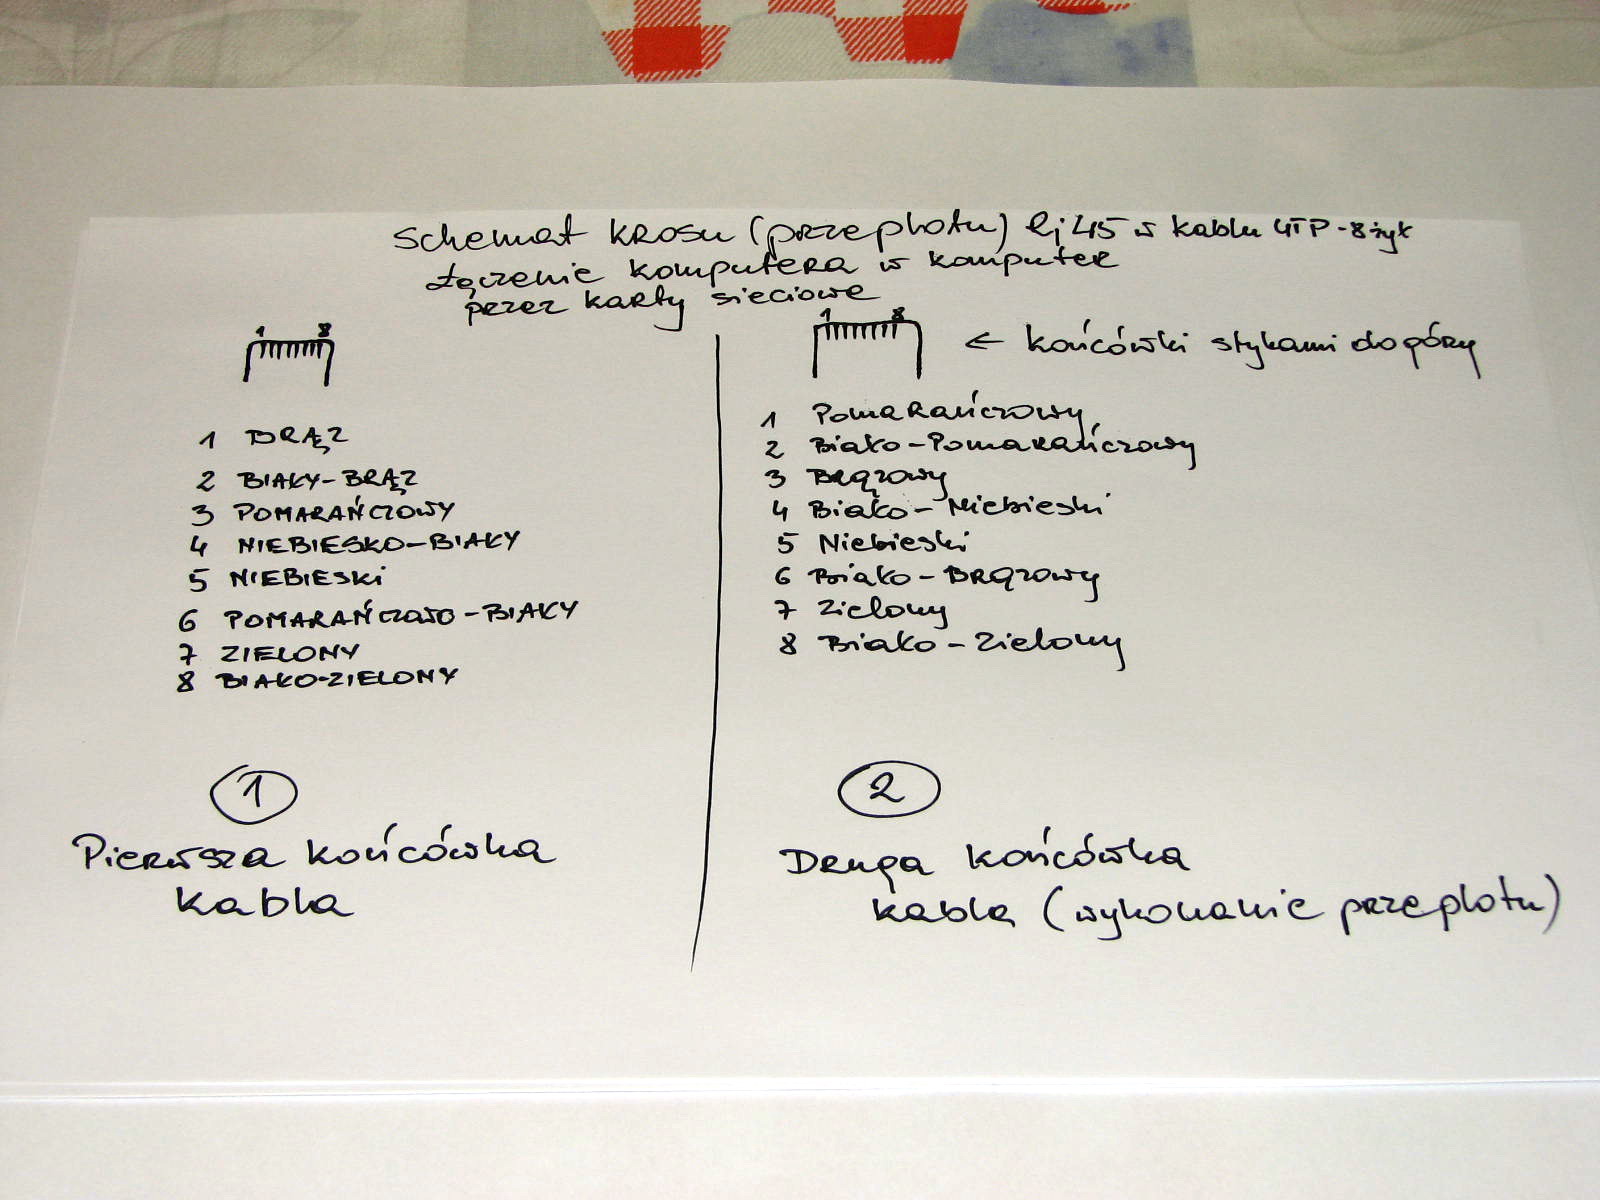 Schemat krosu (przeplotu) Rj45 w kablu UTP-8żył
Łączenie komputera w komputer
przez karty sieciowe
1 8
1 BRĄZ
2 BIAŁY-BRĄZ
3 POMARAŃCZOWY
4 NIEBIESKO-BIAŁY
5 NIEBIESKi
6 POMARAŃCZOWO-BIAŁY
7 ZIELONY
8 BIAŁO-ZIELONY
1
Pierwsza końcówka
kabla
1 8
← końcówki stykami do góry
1 Pomarańczowy
2 Biało-Pomarańczowy
3 Brązowy
4 Biało-Niebieski
5 Niebieski
6 Biało-Brązowy
7 Zielony
8 Biało-Zielony
2
Druga końcówka
kabla (wykonanie przeplotu)